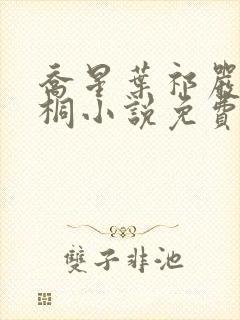 喬星葉祁嚴
桐小說免費
雙子非池